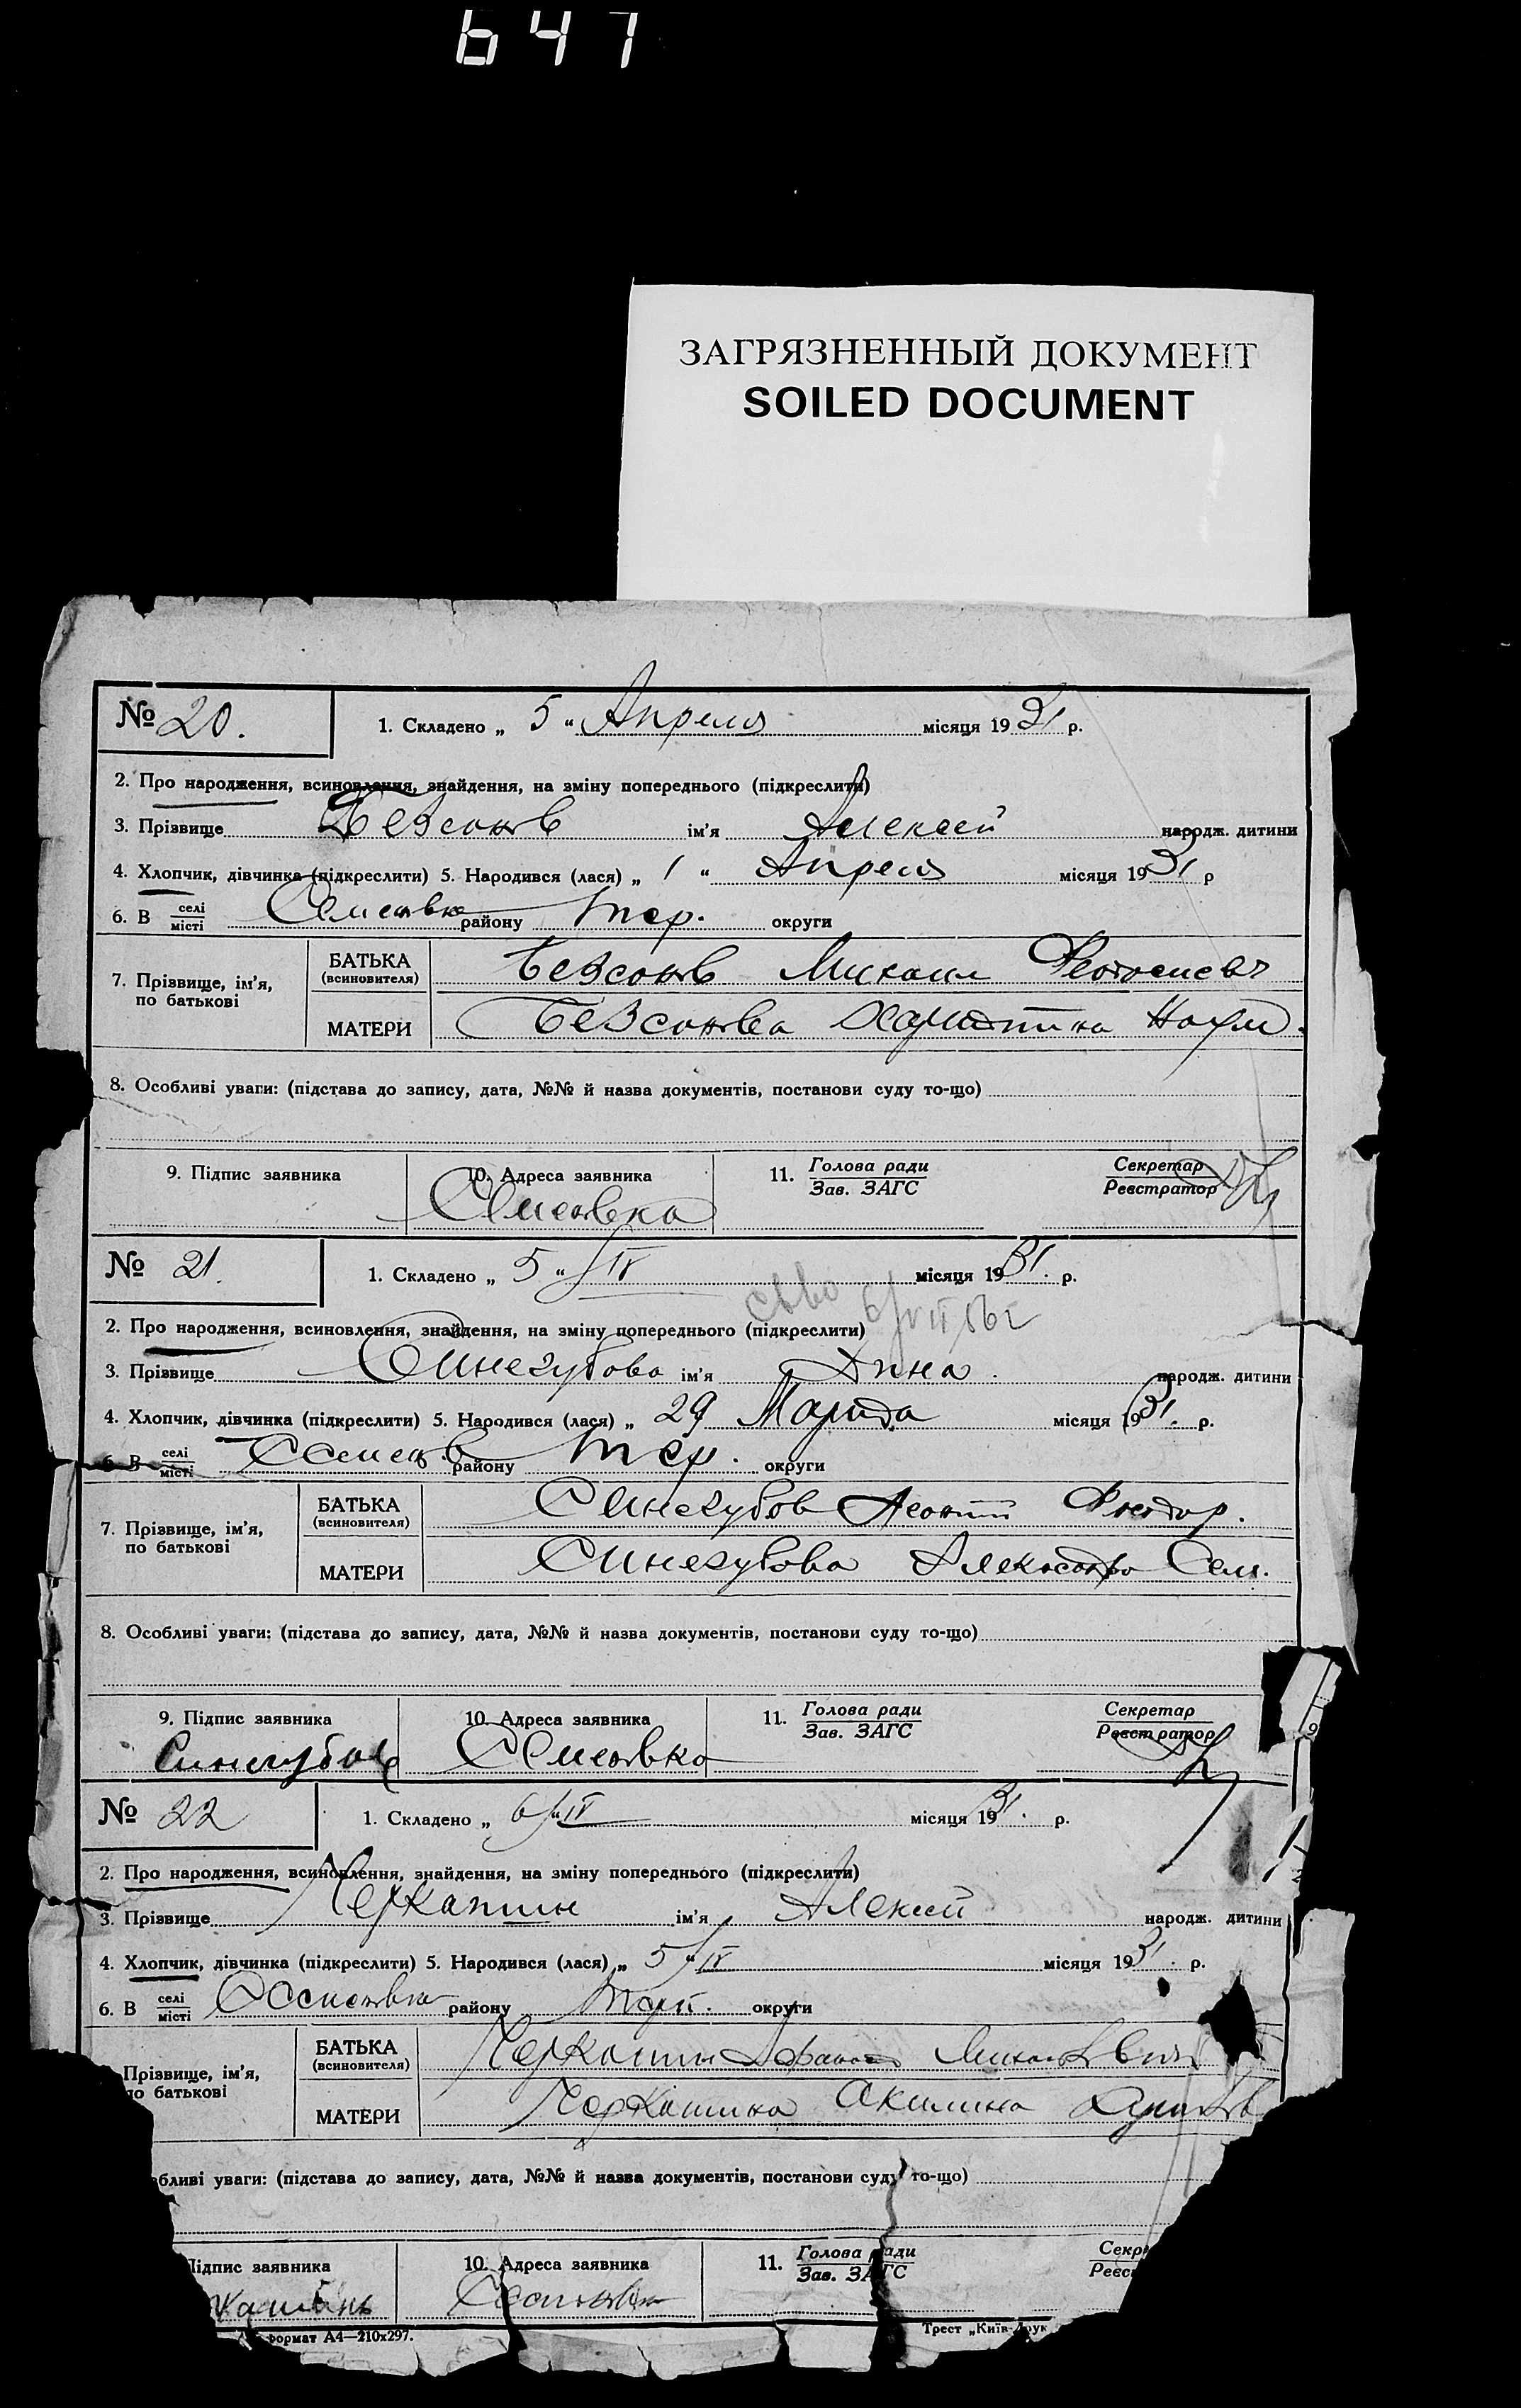 647
ЗАГРЯЗНЕННЫЙ ДОКУМЕНТ
SOILED DOCUMENT
№ 20. 1. Складено „ 5 “ Апреля місяця 1931 р.
2. Про народження, всиновлення, знайдення, на зміну попереднього (підкреслити)
3. Прізвище Безсонов ім'я Алексей народж. дитини
4. Хлопчик, дівчинка (підкреслити) 5. Народився (лася) „ 1 “ Апреля місяця 1931 р
6. В селі місті Семеновка району округи
7. Прізвище, ім'я, по батькові
БАТЬКА (всиновителя) Безсонов Михаил
МАТЕРИ Безсонова Харитина Наум.
8. Особливі уваги: (підстава до запису, дата, №№ й назва документів, постанови суду то-що)
9. Підпис заявника 10. Адреса заявника 11. Голова ради Зав. ЗАГС Секретар Реєстратор
Семеновка
№ 21. 1. Складено „ 5 “ IV місяця 1931. р.
2. Про народження, всиновлення, знайдення, на зміну попереднього (підкреслити)
3. Прізвище Синегубова ім'я народж. дитини
4. Хлопчик, дівчинка (підкреслити) 5. Народився (лася) „ 29 Марта місяця 1931. р.
6. В селі місті Семенов. району округи
7. Прізвище, ім'я, по батькові
БАТЬКА (всиновителя) Синегубов Леонтий Феодор.
МАТЕРИ Синегубова Александра Сем.
8. Особливі уваги: (підстава до запису, дата, №№ й назва документів, постанови суду то-що)
9. Підпис заявника 10. Адреса заявника 11. Голова ради Зав. ЗАГС Секретар Реєстратор
Синегубов Семеновка
№ 22 1. Складено „ 6 “ IV місяця 1931. р.
2. Про народження, всиновлення, знайдення, на зміну попереднього (підкреслити)
3. Прізвище Черкашин ім'я Алексей народж. дитини
4. Хлопчик, дівчинка (підкреслити) 5. Народився (лася) „ 5 “ IV місяця 1931. р.
6. В селі місті Семеновка району округи
Прізвище, ім'я, по батькові
БАТЬКА (всиновителя) Черкашин Михайлович
МАТЕРИ Черкашина Акилина
бливі уваги: (підстава до запису, дата, №№ й назва документів, постанови суду то-що)
Підпис заявника 10. Адреса заявника 11. Голова ради Зав. ЗАГС Секр Реєс
Семеновка
формат А4—210х297. Трест „Київ-Друк